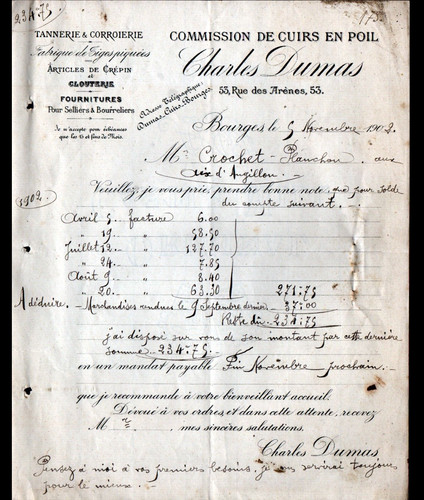 234.75
TANNERIE & CORROIERIE
Fabrique de Tiges piquées
ARTICLES DE CRÉPIN
et
CLOUTERIE
FOURNITURES
Pour Selliers & Bourreliers
Je n'accepte pour échéances
que les 15 et fins de Mois.
COMMISSION DE CUIRS EN POIL
Charles Dumas
53, Rue des Arènes, 53.
Adresse Télégraphique:
Dumas, Cuirs, Bourges
Bourges, le 5 Novembre 1902.
Mr Crochet-Planchon aux
Aix d'Angillon
Veuillez, je vous prie, prendre bonne note que pour solde
du compte suivant.
1902.
Avril 5. facture 6.00
" 19. " 58.50
Juillet 12. " 127.70
" 24. " 7.85
Août 9 " 8.40
" 20. " 63.30 271.75
A déduire. Marchandises rendues le 9 Septembre dernier 37.00
Reste dû 234.75
j'ai disposé sur vous de son montant par cette dernière
somme 234.75
en un mandat payable Fin Novembre prochain.
que je recommande à votre bienveillant accueil.
Dévoué à vos ordres, et dans cette attente, recevez
M r, mes sincères salutations.
Charles Dumas
Pensez à moi à vos premiers besoins, je vous servirai toujours
pour le mieux.